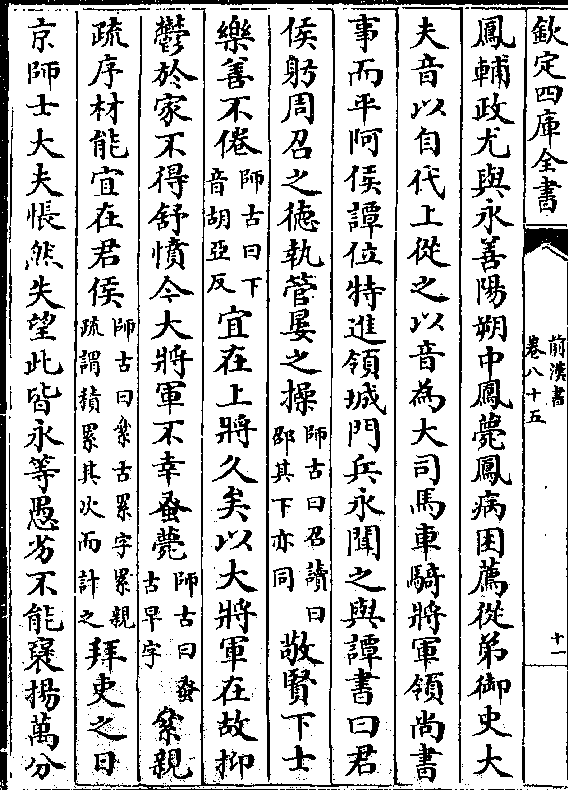 欽定四庫全書
前漢書
卷八十五
十一
鳳輔政尤與永善陽朔中鳳薨鳳病困薦從弟御史大
夫音以自代上從之以音為大司馬車騎將軍領尚書
事而平阿侯譚位特進領城門兵永聞之與譚書曰君
侯躬周召之德執管晏之操師古曰召讀曰邵其下亦同敬賢下士
樂善不倦師古曰下音胡亞反宜在上將久矣以大將軍在故抑
鬱於家不得舒憤今大將軍不幸蚤薨師古曰蚤古早字絫親
疏序材能宜在君侯師古曰絫古累字累親疏謂積累其次而計之拜吏之日
京師士大夫悵然失望此皆永等愚劣不能襃揚萬分